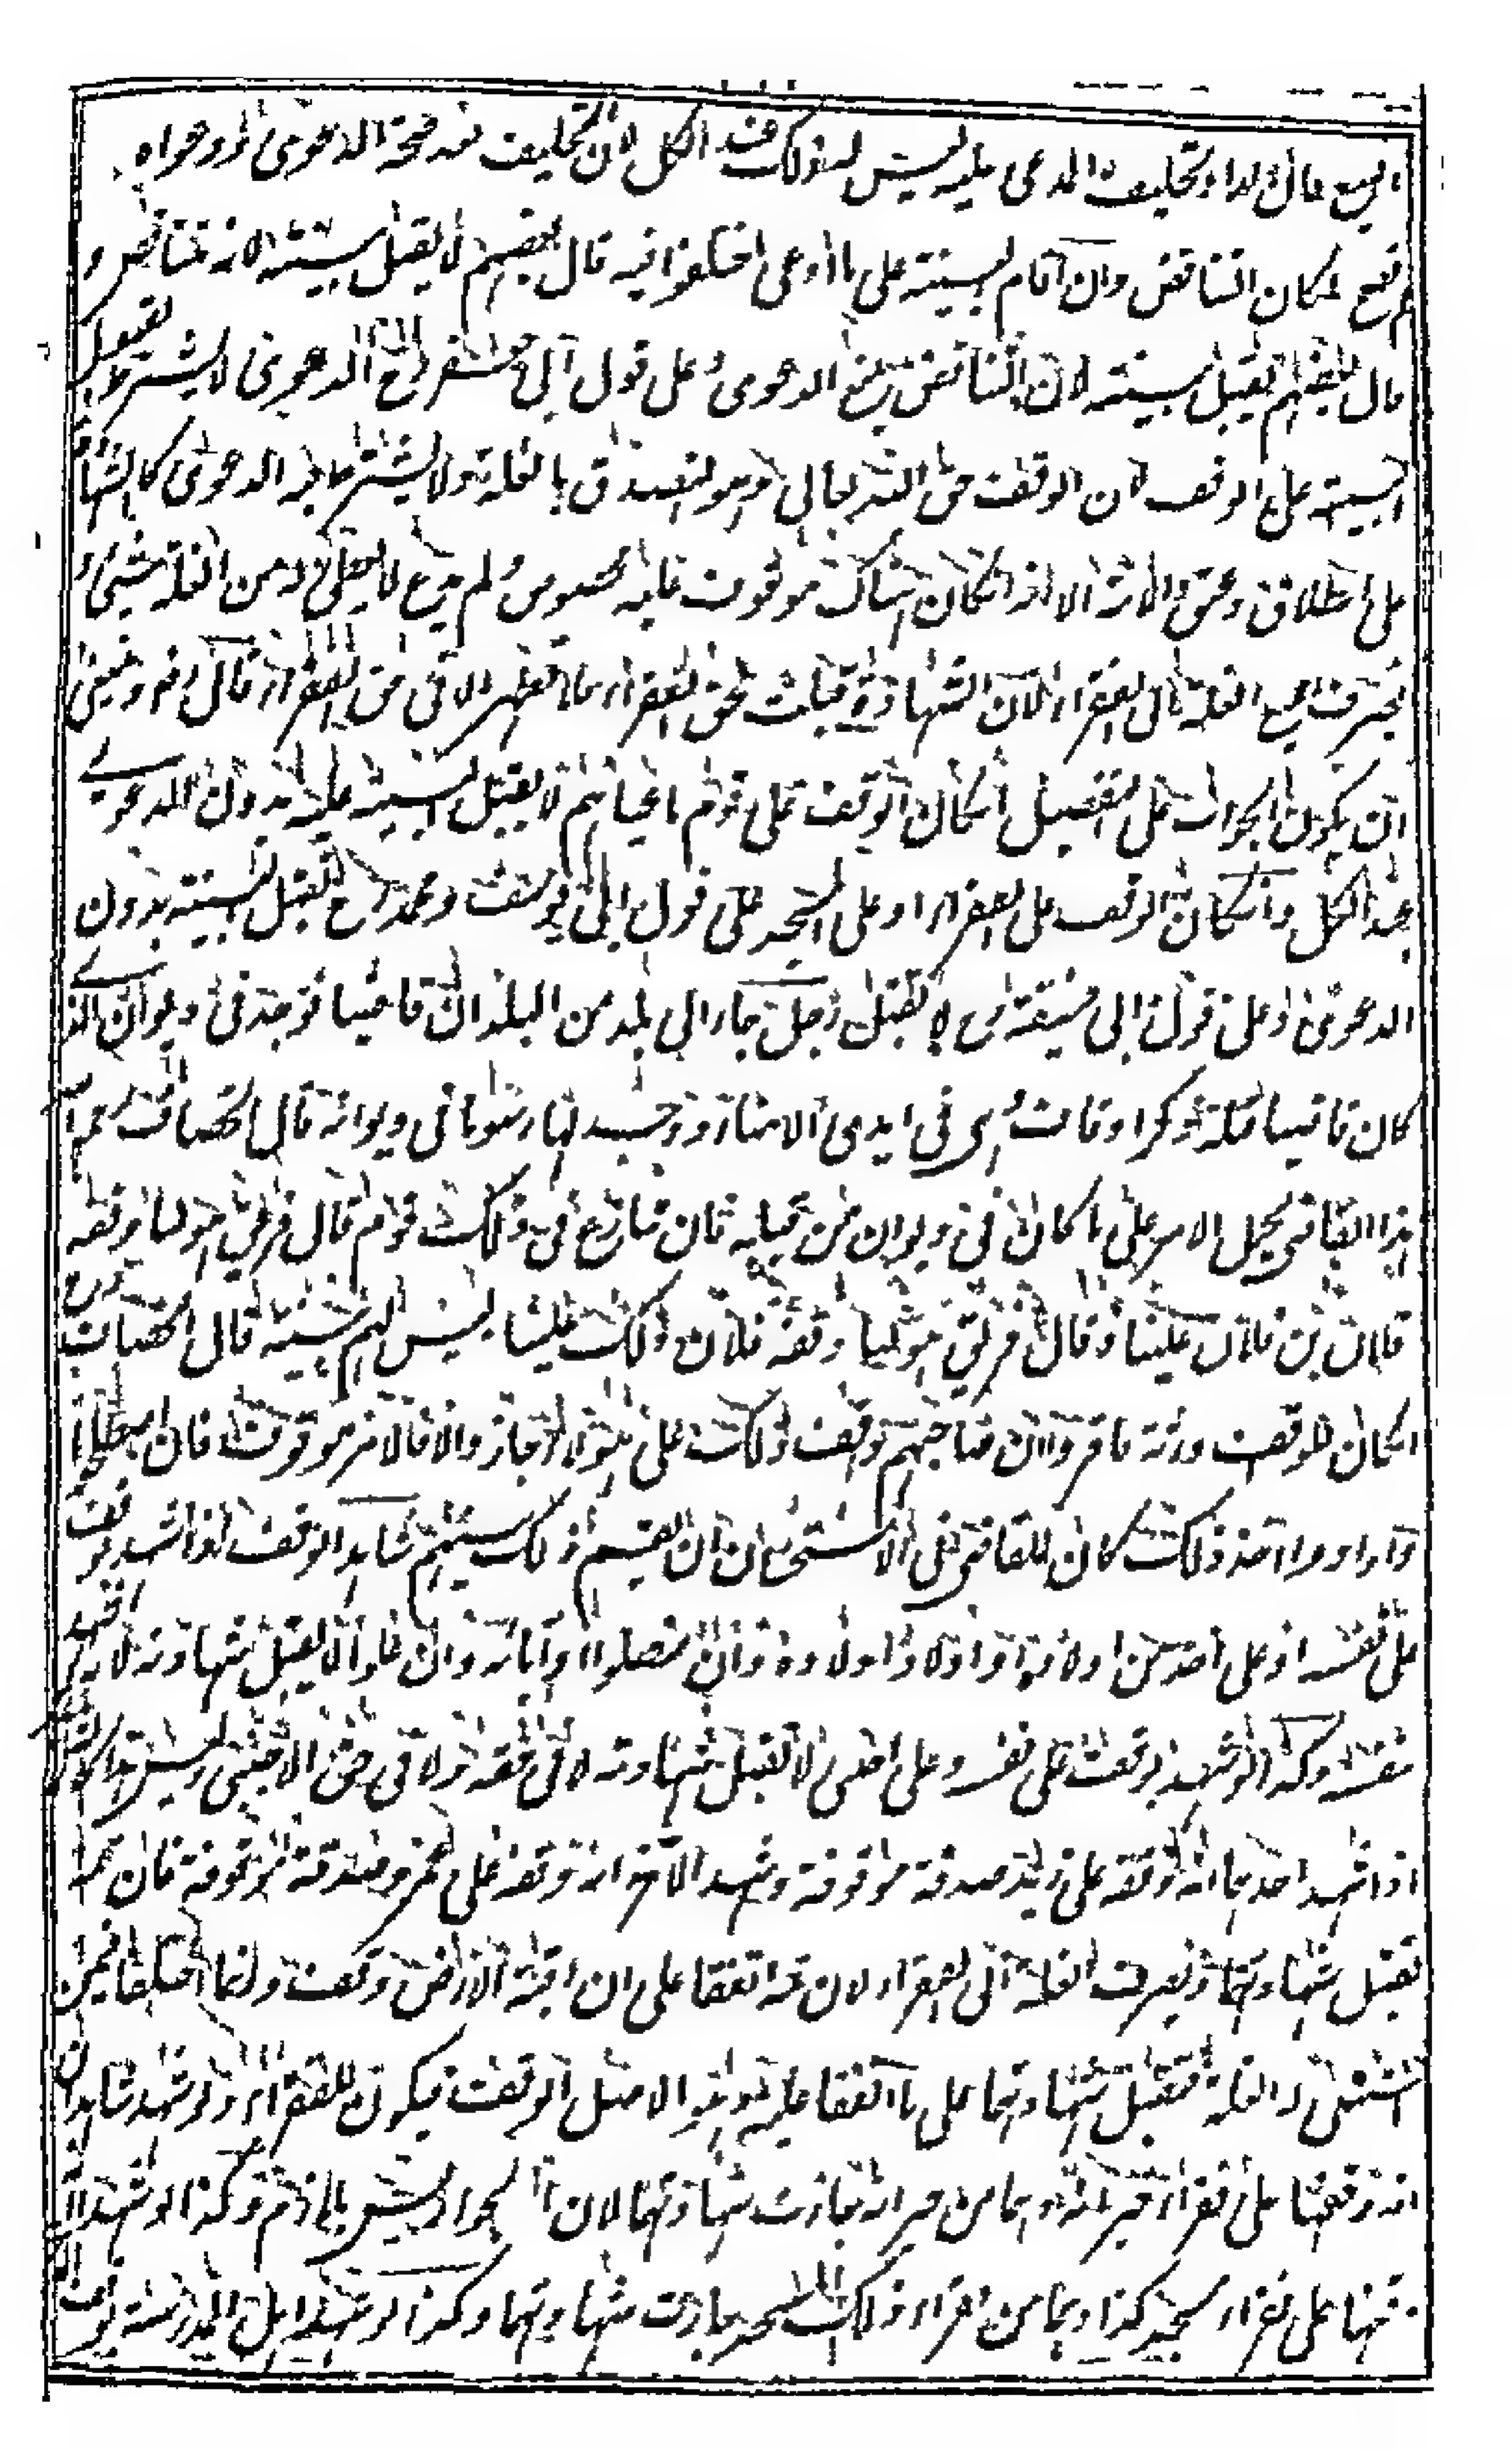 البيع فان اراد تحليف المدعى عليه ليس له ذلك عند الكل لان التحليف بعد صحة الدعوى ودعواه
لم تصح لمكان التناقض وان اقام البينة على ما ادعى اختلفوا فيه قال بعضهم لا يقبل بينته لانه متناقض و
قال بعضهم تقبل بينته لان التناقض يمنع الدعوى وعلى قول ابى جعفر رح الدعوى لا يشترط لقبول
البينة على الوقف لان الوقف حق الله تعالى وهو التصدق بالغلة ولا يشترط فيه الدعوى كالشهادة
على الطلاق وعتق الامة الا انه اذا كان هناك موقوف عليه مخصوص ولم يدع لا يعطى له من الغلة شيئ و
يصرف جميع الغلة الى الفقراء لان الشهادة قبلت لحق الفقراء فلا تظهر الا فى حق الفقراء قال رض وينبغى
ان يكون الجواب على التفصيل ان كان الوقف على قوم باعيانهم لا يقبل البينة عليه بدون الدعوى
عند الكل وان كان الوقف على الفقراء او على المسجد على قول ابى يوسف ومحمد رح تقبل البينة بدون
الدعوى وعلى قول ابى حنيفة رح لا تقبل رجل جاء الى بلد من البلدان قاضيا فوجد فى ديوان الذى
كان قاضيا قبله ذكر اوقاف وهى فى ايدى الامناء ووجد لها رسوما فى ديوانه قال الخصاف رح
هذا القاضى يحمل الامر على ما كان فى ديوان من قبله فان تنازع فى ذلك قوم قال فريق هو لنا وقفه
فلان بن فلان علينا وقال فريق هو لنا وقفه فلان ذلك علينا ليس لهم بينة قال الخصاف رح
ان كان للواقف ورثة فاقروا ان صاحبهم وقف ذلك على هؤلاء جاز والا فالامر موقوف فان اصطلحوا
وارادوا اخذ ذلك كان للقاضى فى الاستحسان ان يقسم ذلك بينهم شاهد الوقف اذا شهد بوقف
على نفسه او على احد من اولاده او اولاد اولاده وان سفلوا او آبائه وان علوا لا يقبل شهادته لانه شهد
لنفسه وكذا لو شهد بوقف على نفسه وعلى اجنبى لا تقبل شهادته لا فى حقه ولا فى حق الاجنبى وليس هذا كما
اذا شهد احدهما انه وقفه على زيد صدقة موقوفة وشهد الآخر انه وقفه على عمرو صدقة موقوفة فان
تقبل شهادتهما ويصرف الغلة الى الفقراء لانهما قد اتفقا على ان هذه الارض وقف وانما اختلفا فيمن
استثنى له الغلة فتقبل شهادتهما على ما اتفقا عليه وهو اصل الوقف فيكون للفقراء ولو شهد شاهدان
انه وقفها على فقراء جيرانه وهما من جيرانه جازت شهادتهما لان الجوار ليس بلازم وكذا لو شهدا انه
وقفها على فقراء مسجد كذا وهما من فقراء ذلك المسجد جازت شهادتهما وكذا لو شهد اهل المدرسة بوقف